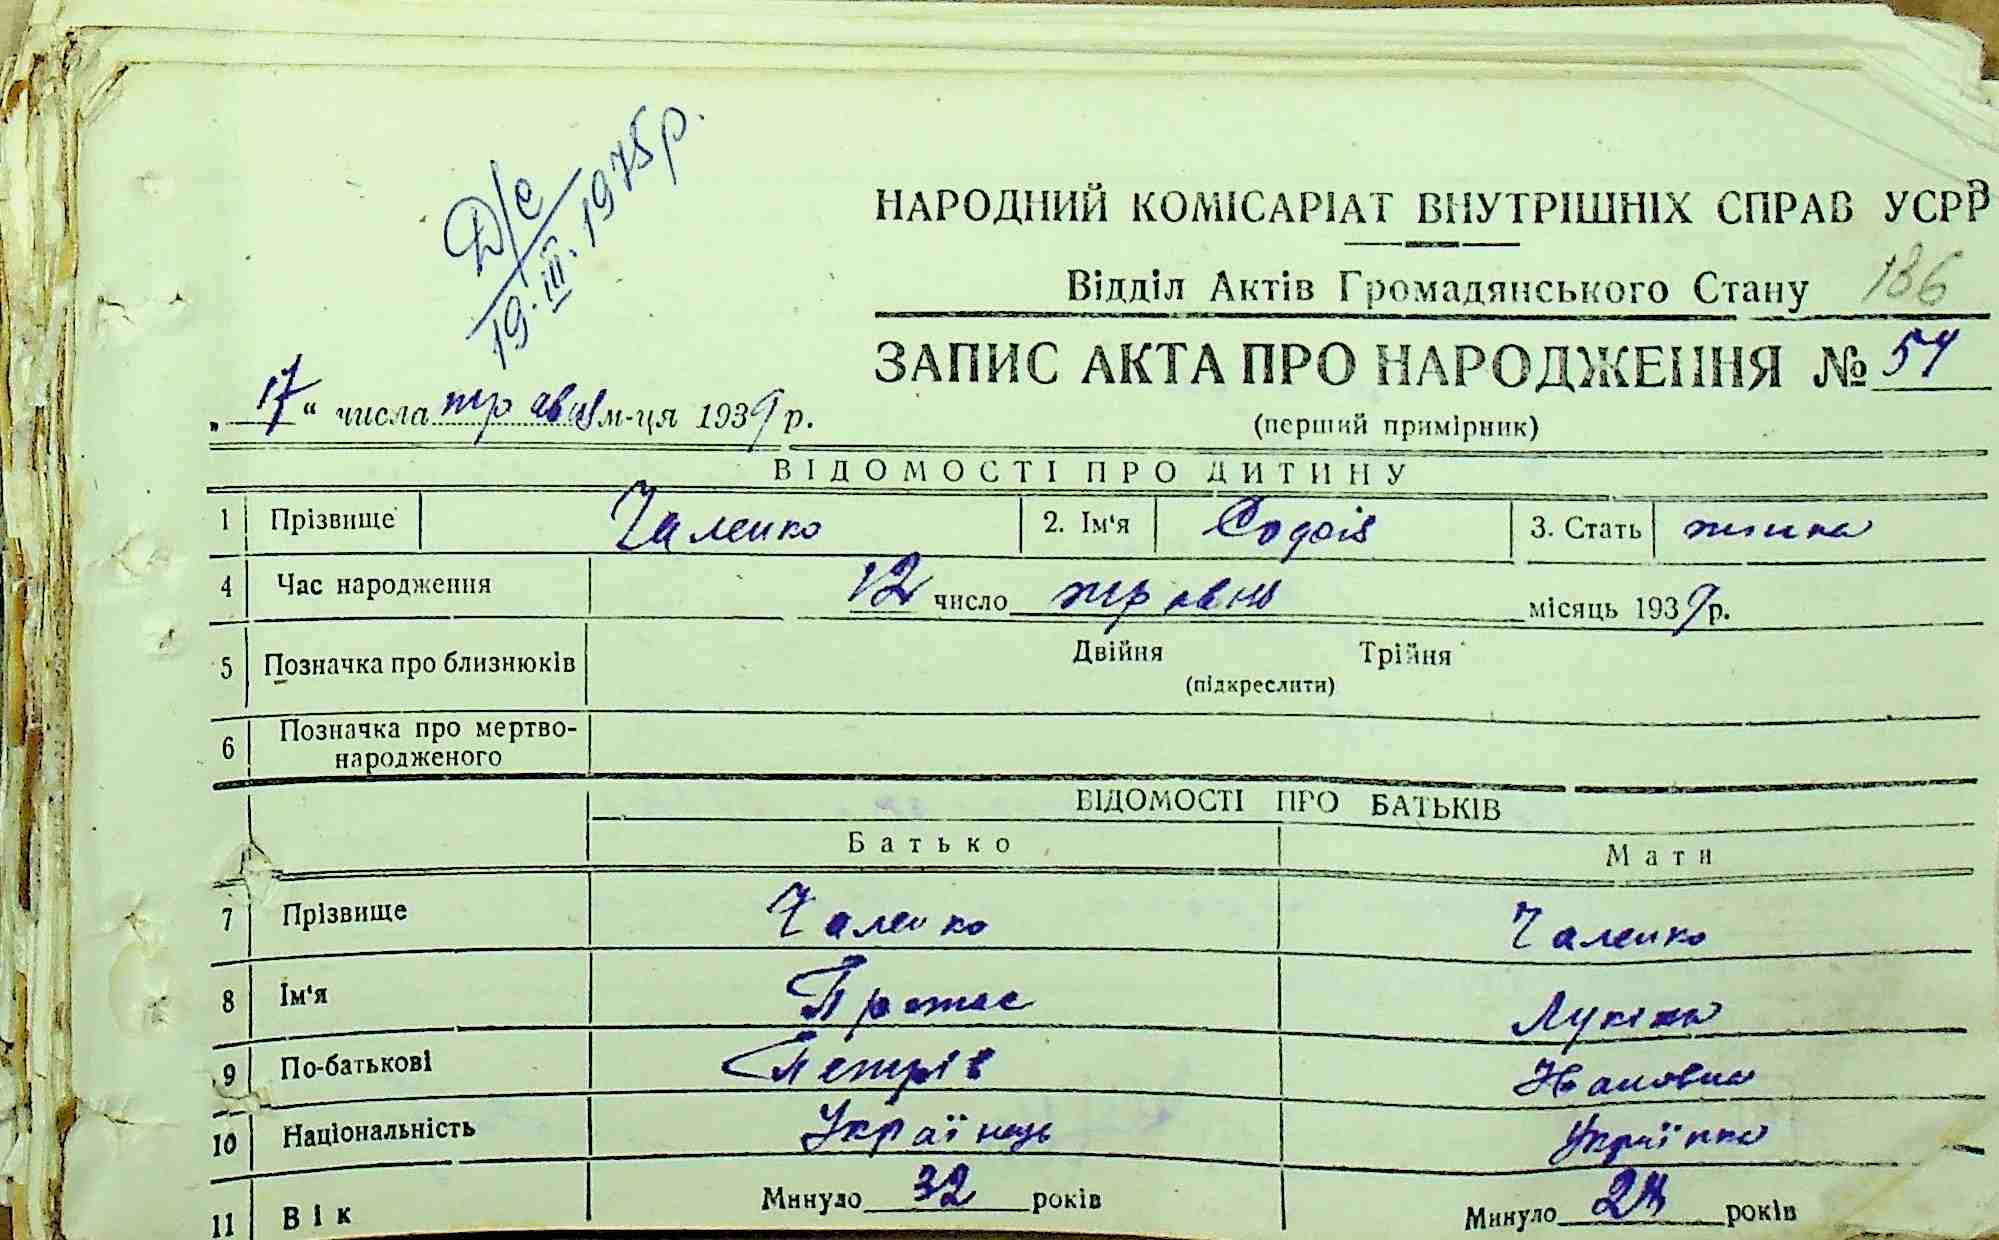 Д/с
19.III.1975р.
НАРОДНИЙ КОМІСАРІАТ ВНУТРІШНІХ СПРАВ УСРР
Відділ Актів Громадянського Стану 186
ЗАПИС АКТА ПРО НАРОДЖЕННЯ №
„17“ числа травня м-ця 1939 р.
(перший примірник)
ВІДОМОСТІ ПРО ДИТИНУ
1 Прізвище Чаленко 2. Ім'я Софія 3. Стать жінка
4 Час народження 12 число травня місяць 1939 р.
5 Позначка про близнюків Двійня Трійня
(підкреслити)
6 Позначка про мертво-
народженого
ВІДОМОСТІ ПРО БАТЬКІВ
Батько Мати
7 Прізвище Чаленко Чаленко
8 Ім'я Протас
9 По-батькові Петрів
10 Національність Українець Українка
11 Вік Минуло 32 років Минуло років